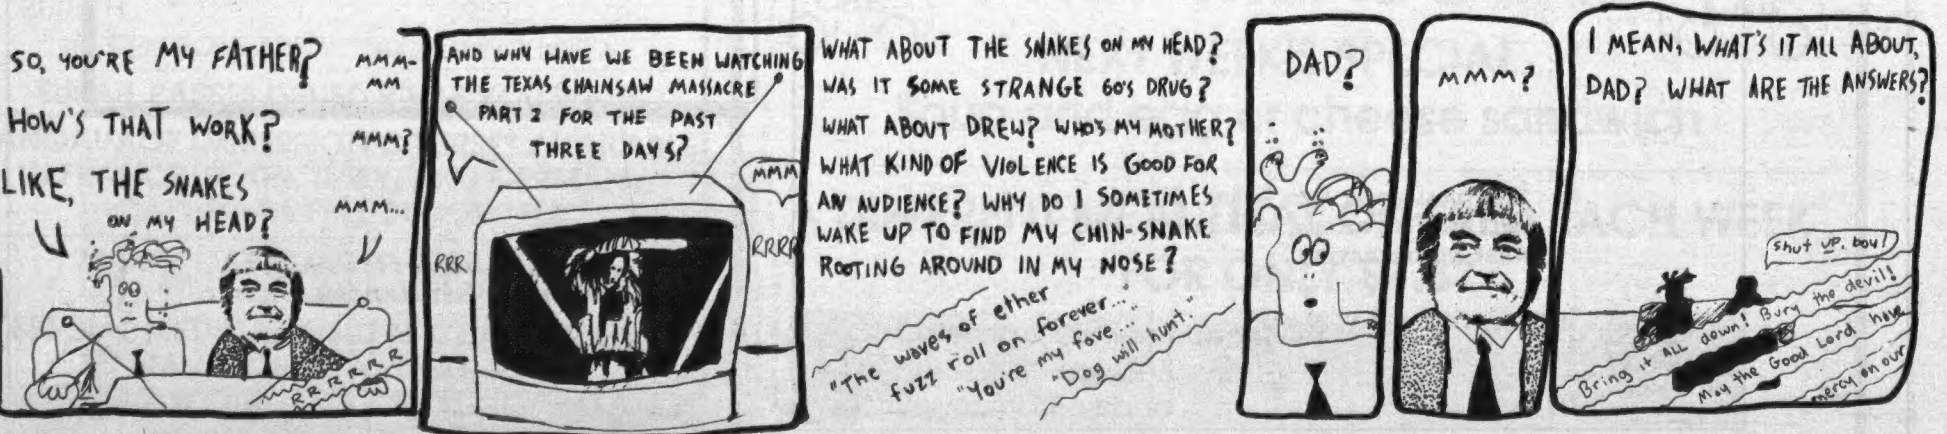 SO, YOU'RE MY FATHER?
MMM-
MM
HOW'S THAT WORK?
MMM?
LIKE, THE SNAKES
ON MY HEAD?
MMM...
RRRRR
RR
AND WHY HAVE WE BEEN WATCHING
THE TEXAS CHAINSAW MASSACRE
PART 2 FOR THE PAST
THREE DAYS?
MMM
RRR
RRRR
WHAT ABOUT THE SNAKES ON MY HEAD?
WAS IT SOME STRANGE 60'S DRUG?
WHAT ABOUT DREW? WHO'S MY MOTHER?
WHAT KIND OF VIOLENCE IS GOOD FOR
AN AUDIENCE? WHY DO I SOMETIMES
WAKE UP TO FIND MY CHIN-SNAKE
ROOTING AROUND IN MY NOSE?
"The waves of ether
fuzz roll on forever..."
"You're my fave..."
"Dog will hunt."
DAD?
MMM?
I MEAN, WHAT'S IT ALL ABOUT,
DAD? WHAT ARE THE ANSWERS?
shut UP, boy!
Bring it ALL down! Bury the devil!
May the Good Lord have
mercy on our
cheese sandwich
EACH WEEK